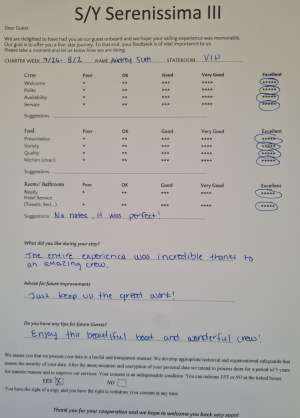 S/Y Serenissima III
Dear Guest
We are delighted to have had you as our guest onboard and we hope your sailing experience was memorable.
Our goal is to offer you a five-star journey. To that end, your feedback is of vital importance to us.
Please take a moment and let us know how we are doing.
CHARTER WEEK 7/26-8/2 NAME STATEROOM VIP
Crew Poor OK Good Very Good Excellent
Welcome * ** *** **** *****
Polite * ** *** **** *****
Availability * ** *** **** *****
Service * ** *** **** *****
Suggestions
Food Poor OK Good Very Good Excellent
Presentation * ** *** **** *****
Variety * ** *** **** *****
Quality * ** *** **** *****
Kitchen (clean) * ** *** **** *****
Suggestions
Rooms/ Bathrooms Poor OK Good Very Good Excellent
Ready * ** *** **** *****
Hotel Service
(Towels, Bed...) * ** *** **** *****
Suggestions No notes, it was perfect!
What did you like during your stay?
The entire experience was incredible thanks to
an amazing crew.
Advice for future improvements
Just keep up the great work!
Do you have any tips for future Guests?
Enjoy this beautiful boat and wonderful crew!
We assure you that we process your data in a lawful and transparent manner. We develop appropriate technical and organizational safeguards that
ensure the security of your data. After the anonymization and encryption of your personal data we intend to process them for a period of 5 years
for statistic reasons and to improve our services. Your consent is an indispensable condition. You can indicate YES or NO at the linked boxes
YES X NO
You have the right of a copy and you have the right to withdraw your consent at any time.
Thank you for your cooperation and we hope to welcome you back very soon!